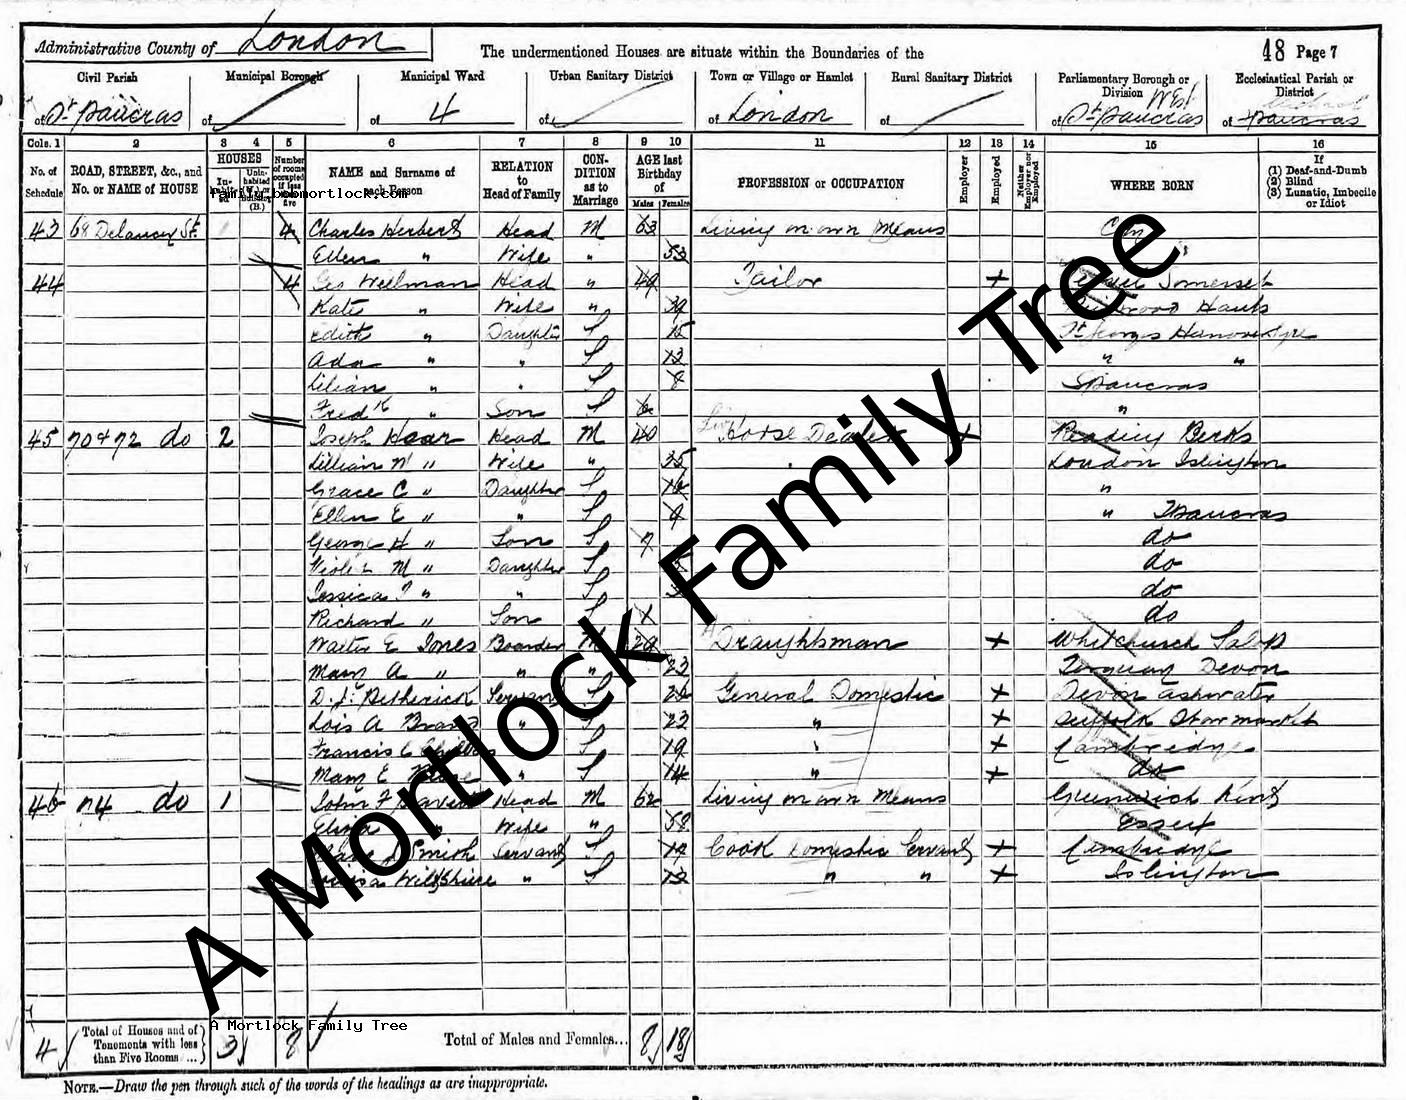 Administrative County of London
The undermentioned Houses are situate within the Boundaries of the
48 Page 7
Civil Parish Municipal Borough Municipal Ward Urban Sanitary District Town or Village or Hamlet Rural Sanitary District Parliamentary Borough or Division Ecclesiastical Parish or District
of St Pancras of of 4 of of London of of St Pancras West of Pancras
Cols. 1 2 3 4 5 6 7 8 9 10 11 12 13 14 15 16
No. of Schedule ROAD, STREET, &c., and No. or NAME of HOUSE HOUSES Inhabited Uninhabited (U.) or Building (B.) Number of rooms occupied if less than five NAME and Surname of each Person RELATION to Head of Family CONDITION as to Marriage AGE last Birthday of Males Females PROFESSION or OCCUPATION Employer Employed Neither Employer nor Employed WHERE BORN If (1) Deaf-and-Dumb (2) Blind (3) Lunatic, Imbecile or Idiot
family.bobmortlock.com
43 68 Delancey St. 4 Charles Herbert Head M 63 Living on own Means
Ellen " Wife " 53
44 4 Geo Wellman Head " 49 Tailor + Somerset
Kate " Wife " 39 Hants
Edith " Daughter S 15 St Georges Hanover Sqre
Ada " " S 13 " "
Lilian " " S 8 S Pancras
Fredk " Son S 6 "
45 70 & 72 do 2 Joseph Hoar Head M 40 Horse Dealer + Reading Berks
Lillian M " Wife " 35 London Islington
Grace C " Daughter S "
Ellen E " " S 9 " Pancras
George H " Son S 7 do
Violet M " Daughter S do
Jessica " " S 3 do
Richard " Son S 1 do
Walter E Jones Boarder M 29 Draughtsman + Whitchurch Salop
Mary A " " " 23 Torquay Devon
D. J. Hetherick Servant S General Domestic + Devon Ashwater
Lois A " S 23 " + Suffolk Stowmarket
Francis C S 19 " + Cambridge
Mary E " S 14 " + do
46 74 do 1 John F Head M 62 Living on own Means Greenwich Kent
Eliza " Wife " 58 Essex
Smith Servant S 19 Cook Domestic Servant + Cambridge
Louisa Wiltshire " S " " + Islington
A Mortlock Family Tree
A Mortlock Family Tree
4 Total of Houses and of Tenements with less than Five Rooms ... 3 8 Total of Males and Females... 8 18
NOTE.—Draw the pen through such of the words of the headings as are inappropriate.